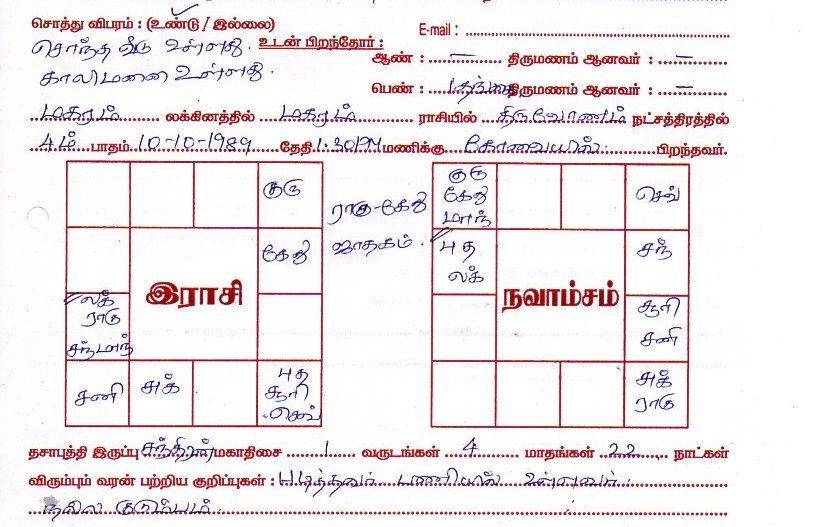 சொத்து விபரம் : (உண்டு / இல்லை)
E-mail : 
சொந்த வீடு உள்ளது. உடன் பிறந்தோர் :
ஆண் : — திருமணம் ஆனவர் : —
காலிமனை உள்ளது.
பெண் : 1 தங்கை திருமணம் ஆனவர் : —
மகரம் லக்கினத்தில் மகரம் ராசியில் திருவோணம் நட்சத்திரத்தில்
4ம் பாதம் 10-10-1989 தேதி 1.30 PM மணிக்கு கோவையில் பிறந்தவர்.
குரு
கேது
இராசி
லக்
ராகு
சந் மாந்
சனி
சுக்
புத
சூரி
செவ்
ராகு-கேது
ஜாதகம்.
குரு
கேது
மாந்
செவ்
புத
லக்
சந்
நவாம்சம்
சூரி
சனி
சுக்
ராகு
தசாபுத்தி இருப்பு சந்திரன் மகாதிசை 1 வருடங்கள் 4 மாதங்கள் 22 நாட்கள்
விரும்பும் வரன் பற்றிய குறிப்புகள் : படித்தவர் பணியில் உள்ளவர்.
நல்ல குடும்பம்.